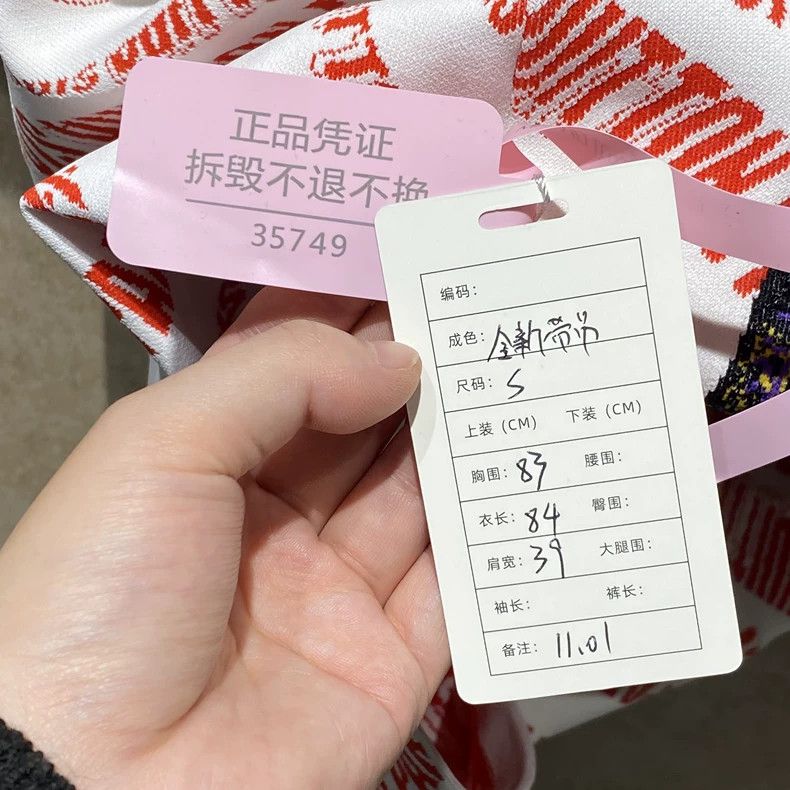 正品凭证
拆毁不退不换
35749
编码:
成色: 全新带吊
尺码: S
上装 (CM) 下装 (CM)
胸围: 83 腰围:
衣长: 84 臀围:
肩宽: 39 大腿围:
袖长: 裤长:
备注: 11.01